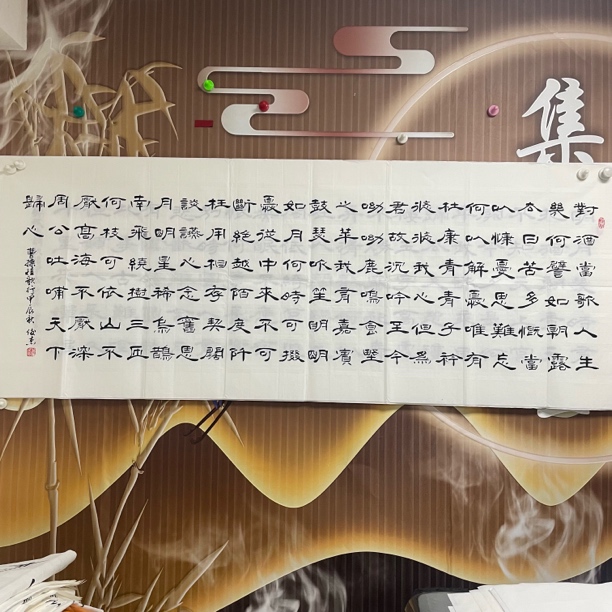 集
對酒當歌人生
幾何譬如朝露
去日苦多慨當
以慷憂思難忘
何以解憂唯有
杜康青青子衿
悠悠我心但為
君故沉吟至今
呦呦鹿鳴食野
之苹我有嘉賓
鼓瑟吹笙明明
如月何時可掇
憂從中來不可
斷絕越陌度阡
枉用相存契闊
談讌心念舊恩
月明星稀烏鵲
南飛繞樹三匝
何枝可依山不
厭高海不厭深
周公吐哺天下
歸心
曹操短歌行甲辰秋